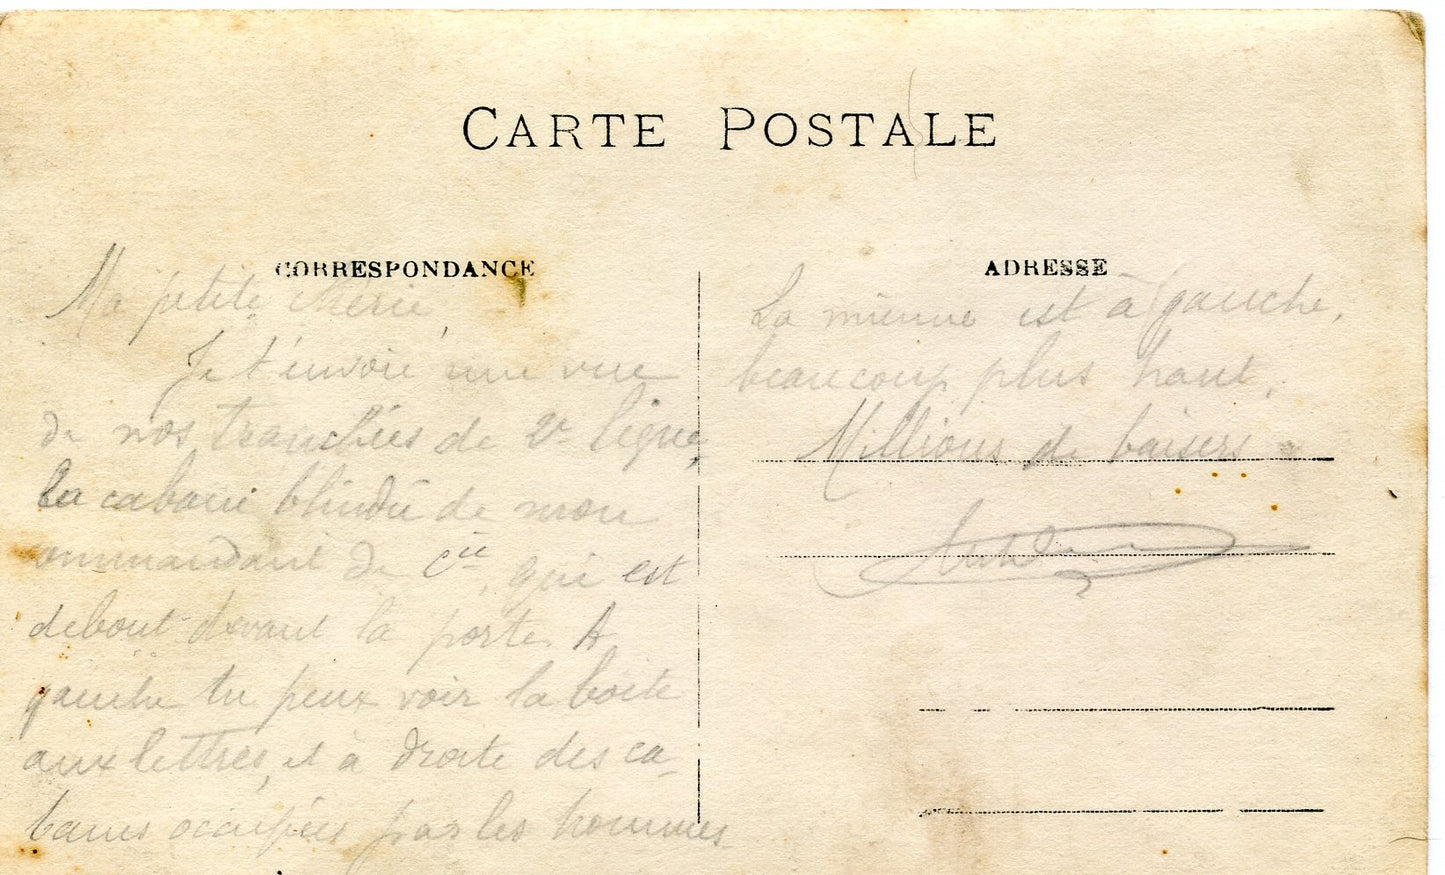 CARTE POSTALE
CORRESPONDANCE
Ma petite chérie,
Je t'envoie une vue
de nos tranchées de 2e ligne,
la cabane blindée de mon
commandant de Cie, qui est
debout devant la porte. A
gauche tu peux voir la boite
aux lettres, et à droite des ca-
banes occupées par les hommes
ADRESSE
La mienne est à gauche,
beaucoup plus haut.
Millions de baisers